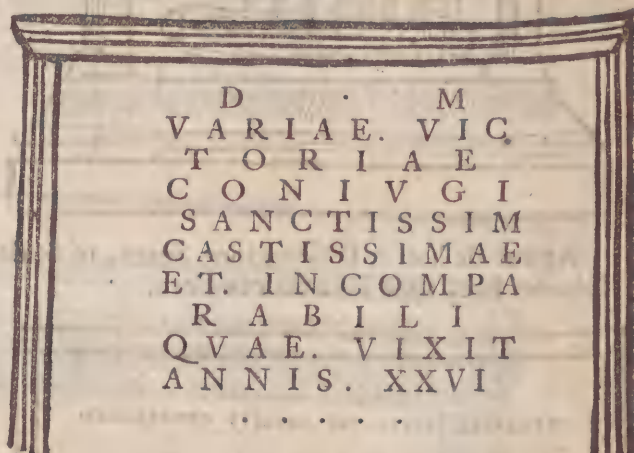 D · M
VARIAE. VIC
TORIAE
CONIVGI
SANCTISSIM
CASTISSIMAE
ET. INCOMPA
RABILI
QVAE. VIXIT
ANNIS. XXVI
. . . . . .